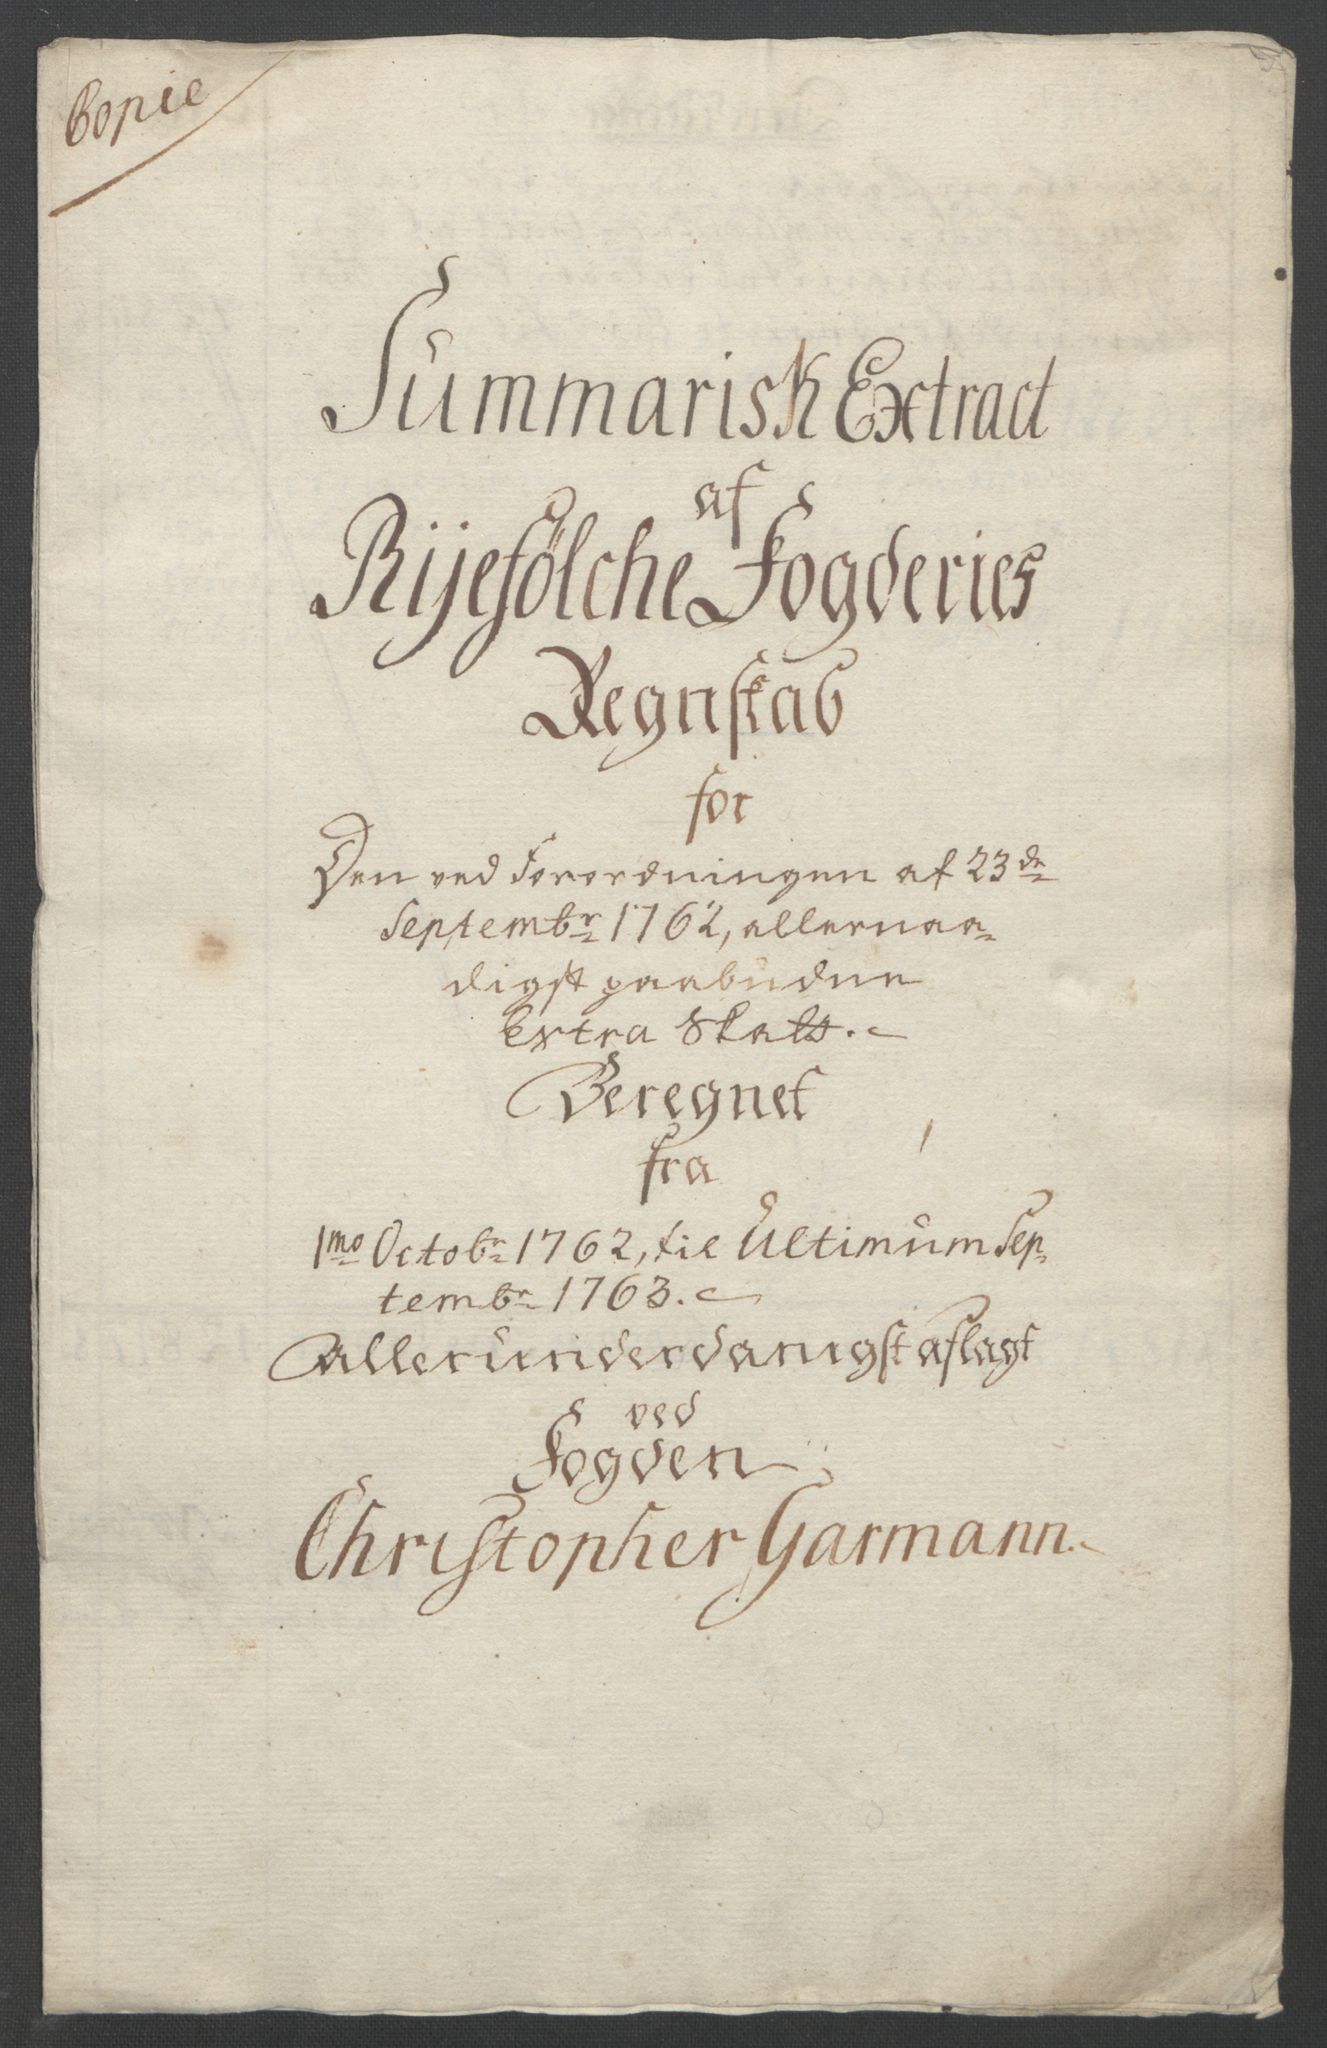 Copie
Summarisk Extract
af
Rijefölche Fogderies
Regnskab
for
Den ved Forordningen af 23de
Septembr 1762, allernaa-
digst paabudne
Extra Skatt.
Beregnet
fra
1mo Octobr 1762, til Ultimum Sep-
tembr 1763.
Allerunderdanigst aflagt
ved
Fogden
Christopher Garmann.